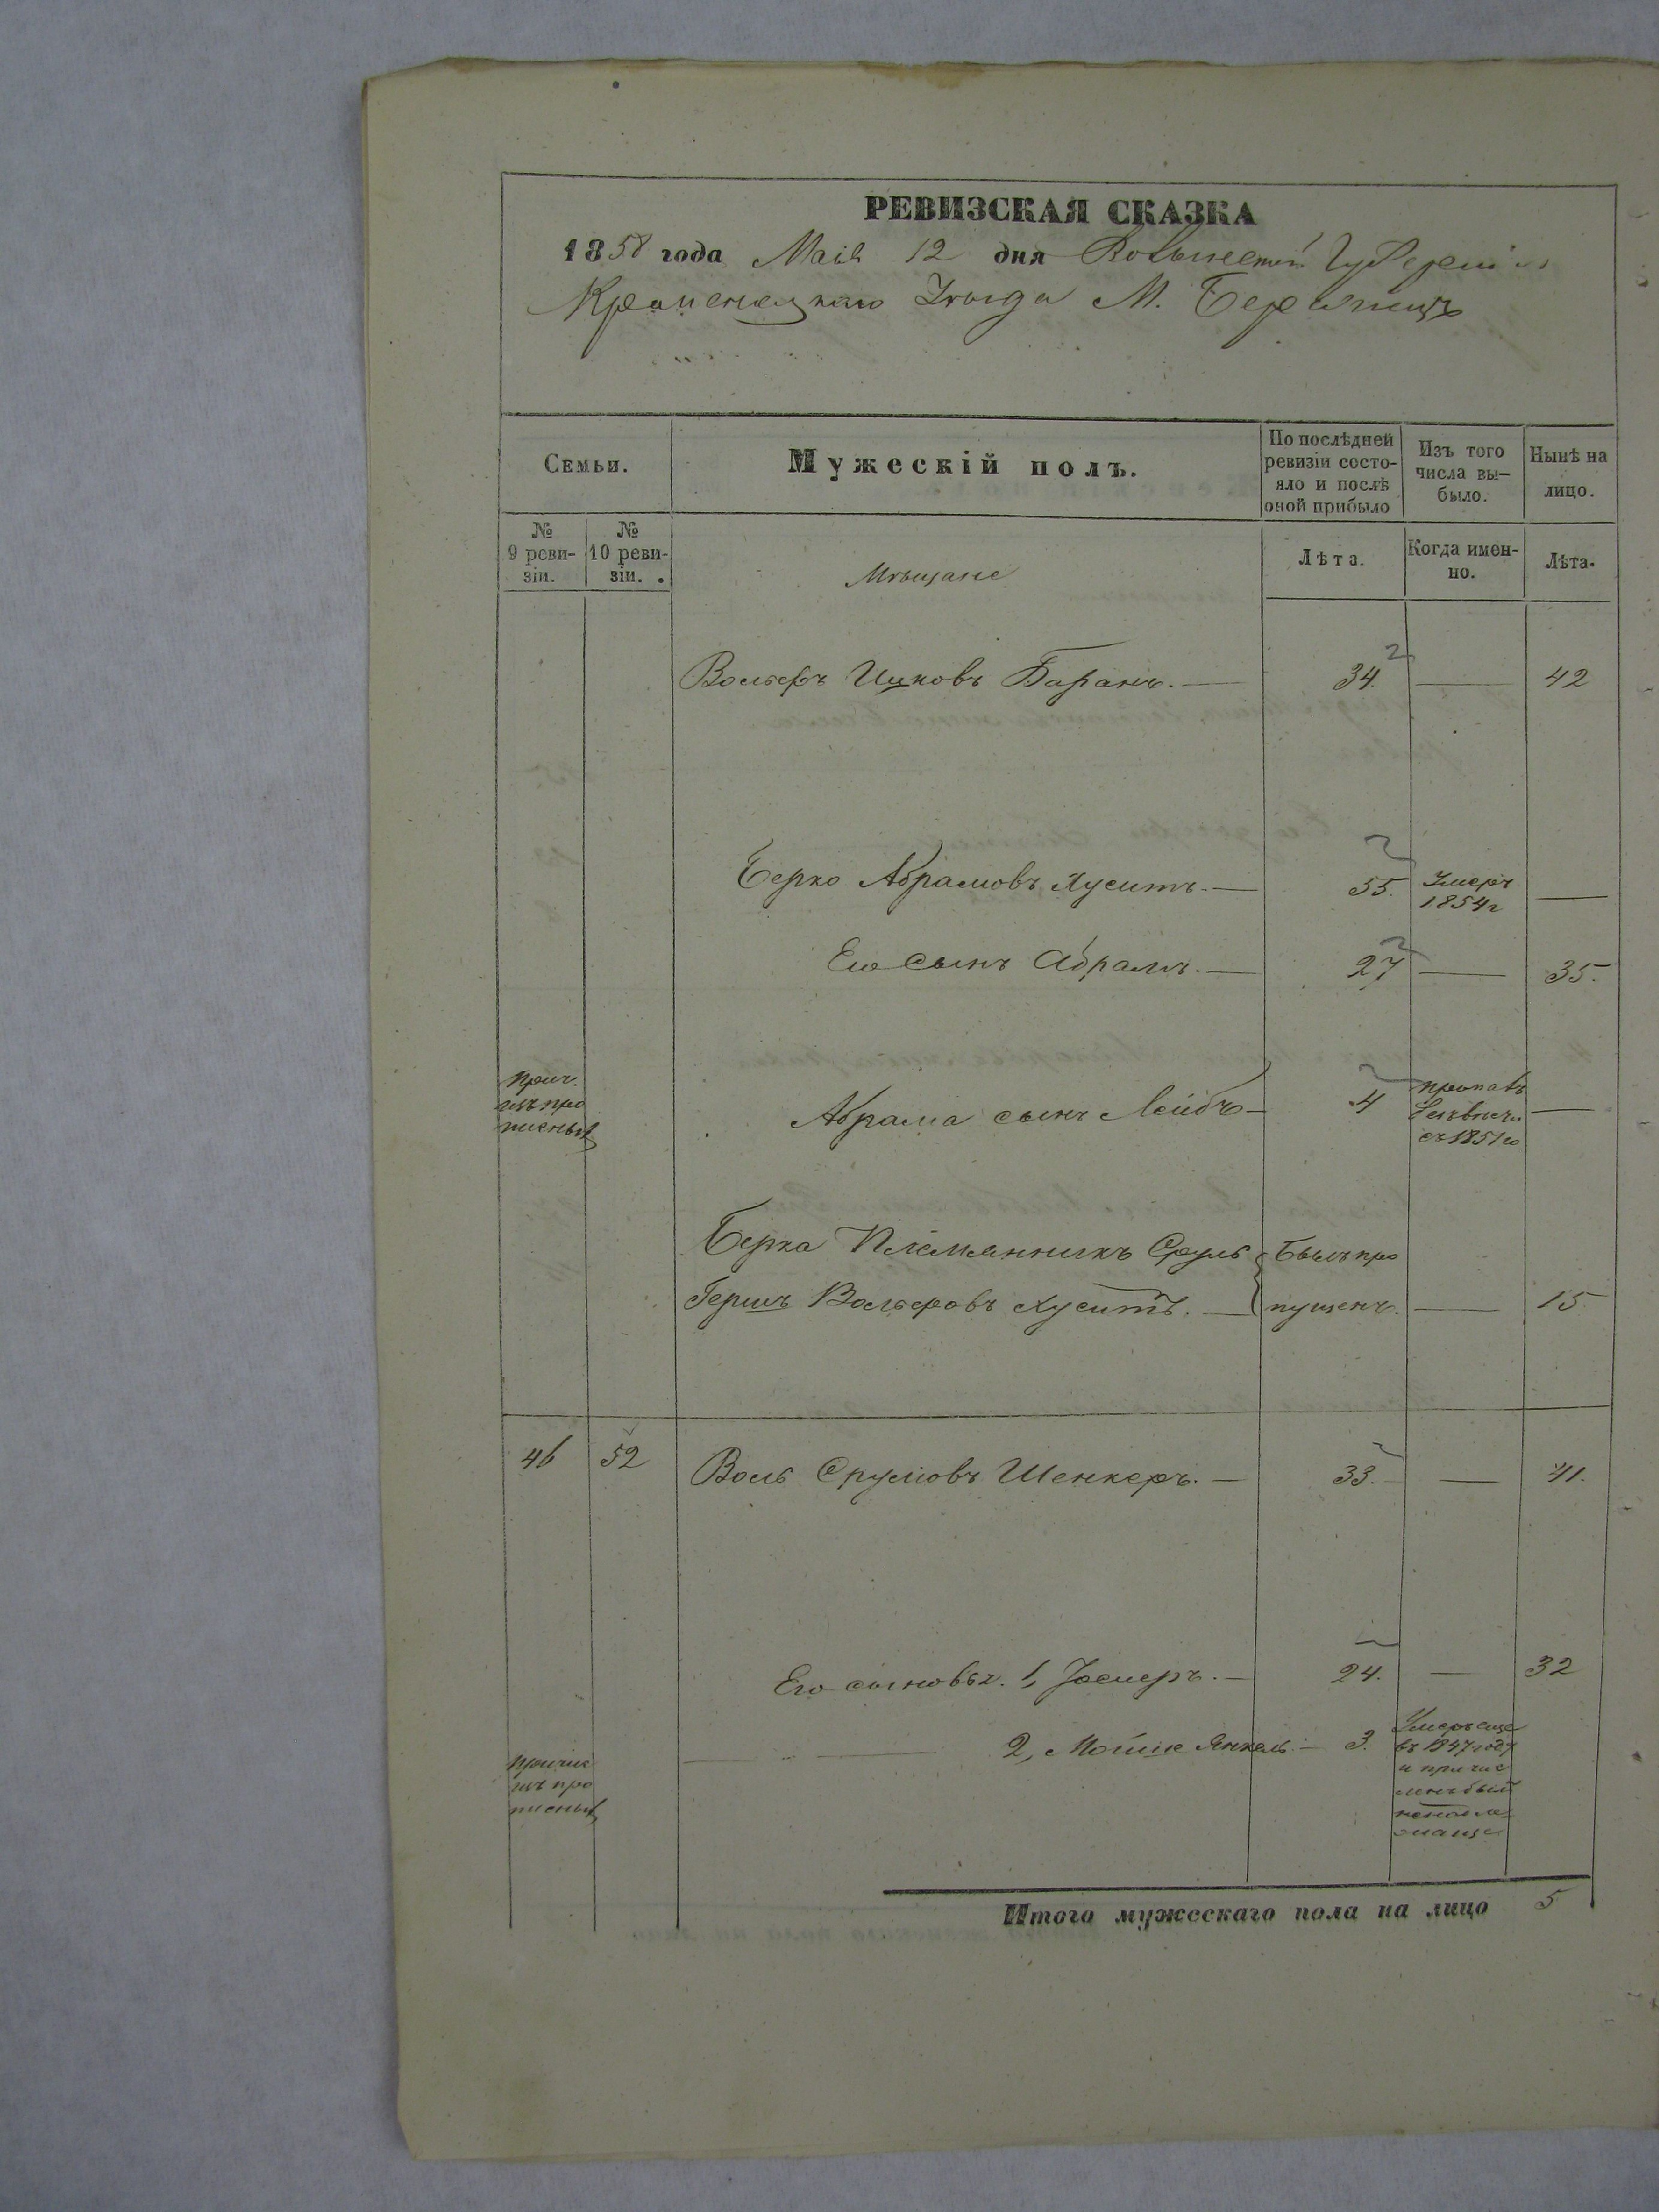 РЕВИЗСКАЯ СКАЗКА
1858 года Маія 12 дня Волынской Губерніи
Кременецкаго Уѣзда М. Бережницъ
Семьи.
Мужескій полъ.
По послѣдней ревизіи состояло и послѣ оной прибыло
Изъ того числа вы-было.
Нынѣ на лицо.
№ 9 реви-зіи.
№ 10 реви-зіи.
Мѣщане
Лѣта.
Когда имен-но.
Лѣта.
Вольфъ Ицковъ Баранъ. — 34. — 42
Берко Абрамовъ Хуситъ. — 55. Умеръ 1854г —
Его Сынъ Абрамъ. — 27 — 35.
Абрама сынъ Лейбъ — 4 съ 1851го —
Берка Племянникъ Сруль Былъ про
Гершъ Вольфовъ Хуситъ. — пущенъ. — 15
46 52 Воль Срулiовъ Шенкеръ. — 33. — 41.
Его сыновья. 1, — 24. — 32
2, Мошке Янкель — 3. Умеръ еще
въ 1847 году
и причис
ленъ былъ
Итого мужескаго пола на лицо 5